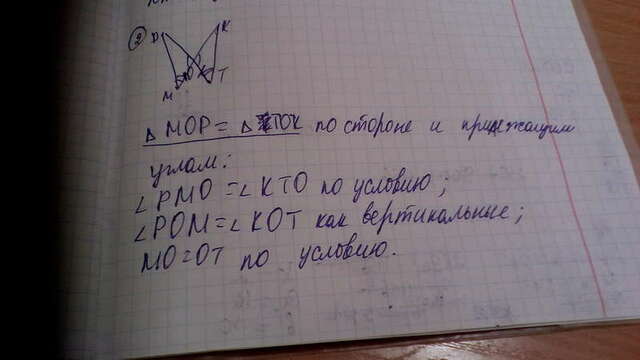 2
P K
M O T
△ MOP = △ TOK по стороне и прилежащим
углам:
∠ PMO = ∠ KTO по условию;
∠ POM = ∠ KOT как вертикальные;
MO = OT по условию.